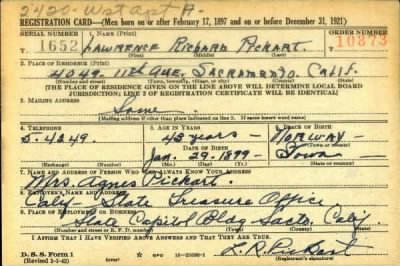 2420-West Apt A.
REGISTRATION CARD—(Men born on or after February 17, 1897 and on or before December 31, 1921)
SERIAL NUMBER 1. NAME (Print) ORDER NUMBER
1652 LAWRENCE RICHARD PICKART. 10873
(First) (Middle) (Last)
2. PLACE OF RESIDENCE (Print)
4049 11th Ave. SACRAMENTO. CALIF.
(Number and street) (Town, township, village, or city) (County) (State)
[THE PLACE OF RESIDENCE GIVEN ON THE LINE ABOVE WILL DETERMINE LOCAL BOARD
JURISDICTION; LINE 2 OF REGISTRATION CERTIFICATE WILL BE IDENTICAL]
3. MAILING ADDRESS
Same
[Mailing address if other than place indicated on line 2. If same insert word same]
4. TELEPHONE 5. AGE IN YEARS 6. PLACE OF BIRTH
5-4249. 43 years - NORWAY -
DATE OF BIRTH (Town or county)
Jan. 29-1899 - Iowa
(Exchange) (Number) (Mo.) (Day) (Yr.) (State or country)
7. NAME AND ADDRESS OF PERSON WHO WILL ALWAYS KNOW YOUR ADDRESS
Mrs Agnes Pickart.
8. EMPLOYER'S NAME AND ADDRESS
Calif - State Treasure Office
9. PLACE OF EMPLOYMENT OR BUSINESS
State Capitol Bldg Sacto, Calif.
(Number and street or R. F. D. number) (Town) (County) (State)
I AFFIRM THAT I HAVE VERIFIED ABOVE ANSWERS AND THAT THEY ARE TRUE.
D. S. S. Form 1
(Revised 1-1-42) (over) GPO 16-21630-1
L. R. Pickart
(Registrant's signature)